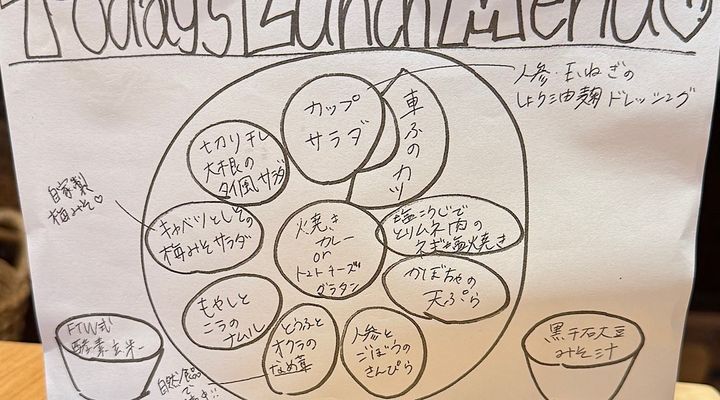 Today's Lunch Menu♡
カップ
サラダ
人参・玉ねぎの
しょうゆ麹ドレッシング
車ふのカツ
切り干し
大根の
タイ風サラダ
自家製
梅みそ♡
キャベツとしその
梅みそサラダ
焼き
カレー
or
トマトチーズ
グラタン
塩こうじで
とりムネ肉の
ネギ塩焼き
かぼちゃの
天ぷら
もやしと
ニラの
ナムル
とうふと
オクラの
なめ茸
人参と
ごぼうの
きんぴら
FTW式
酵素玄米
自然食品
で
黒千石大豆
みそ汁